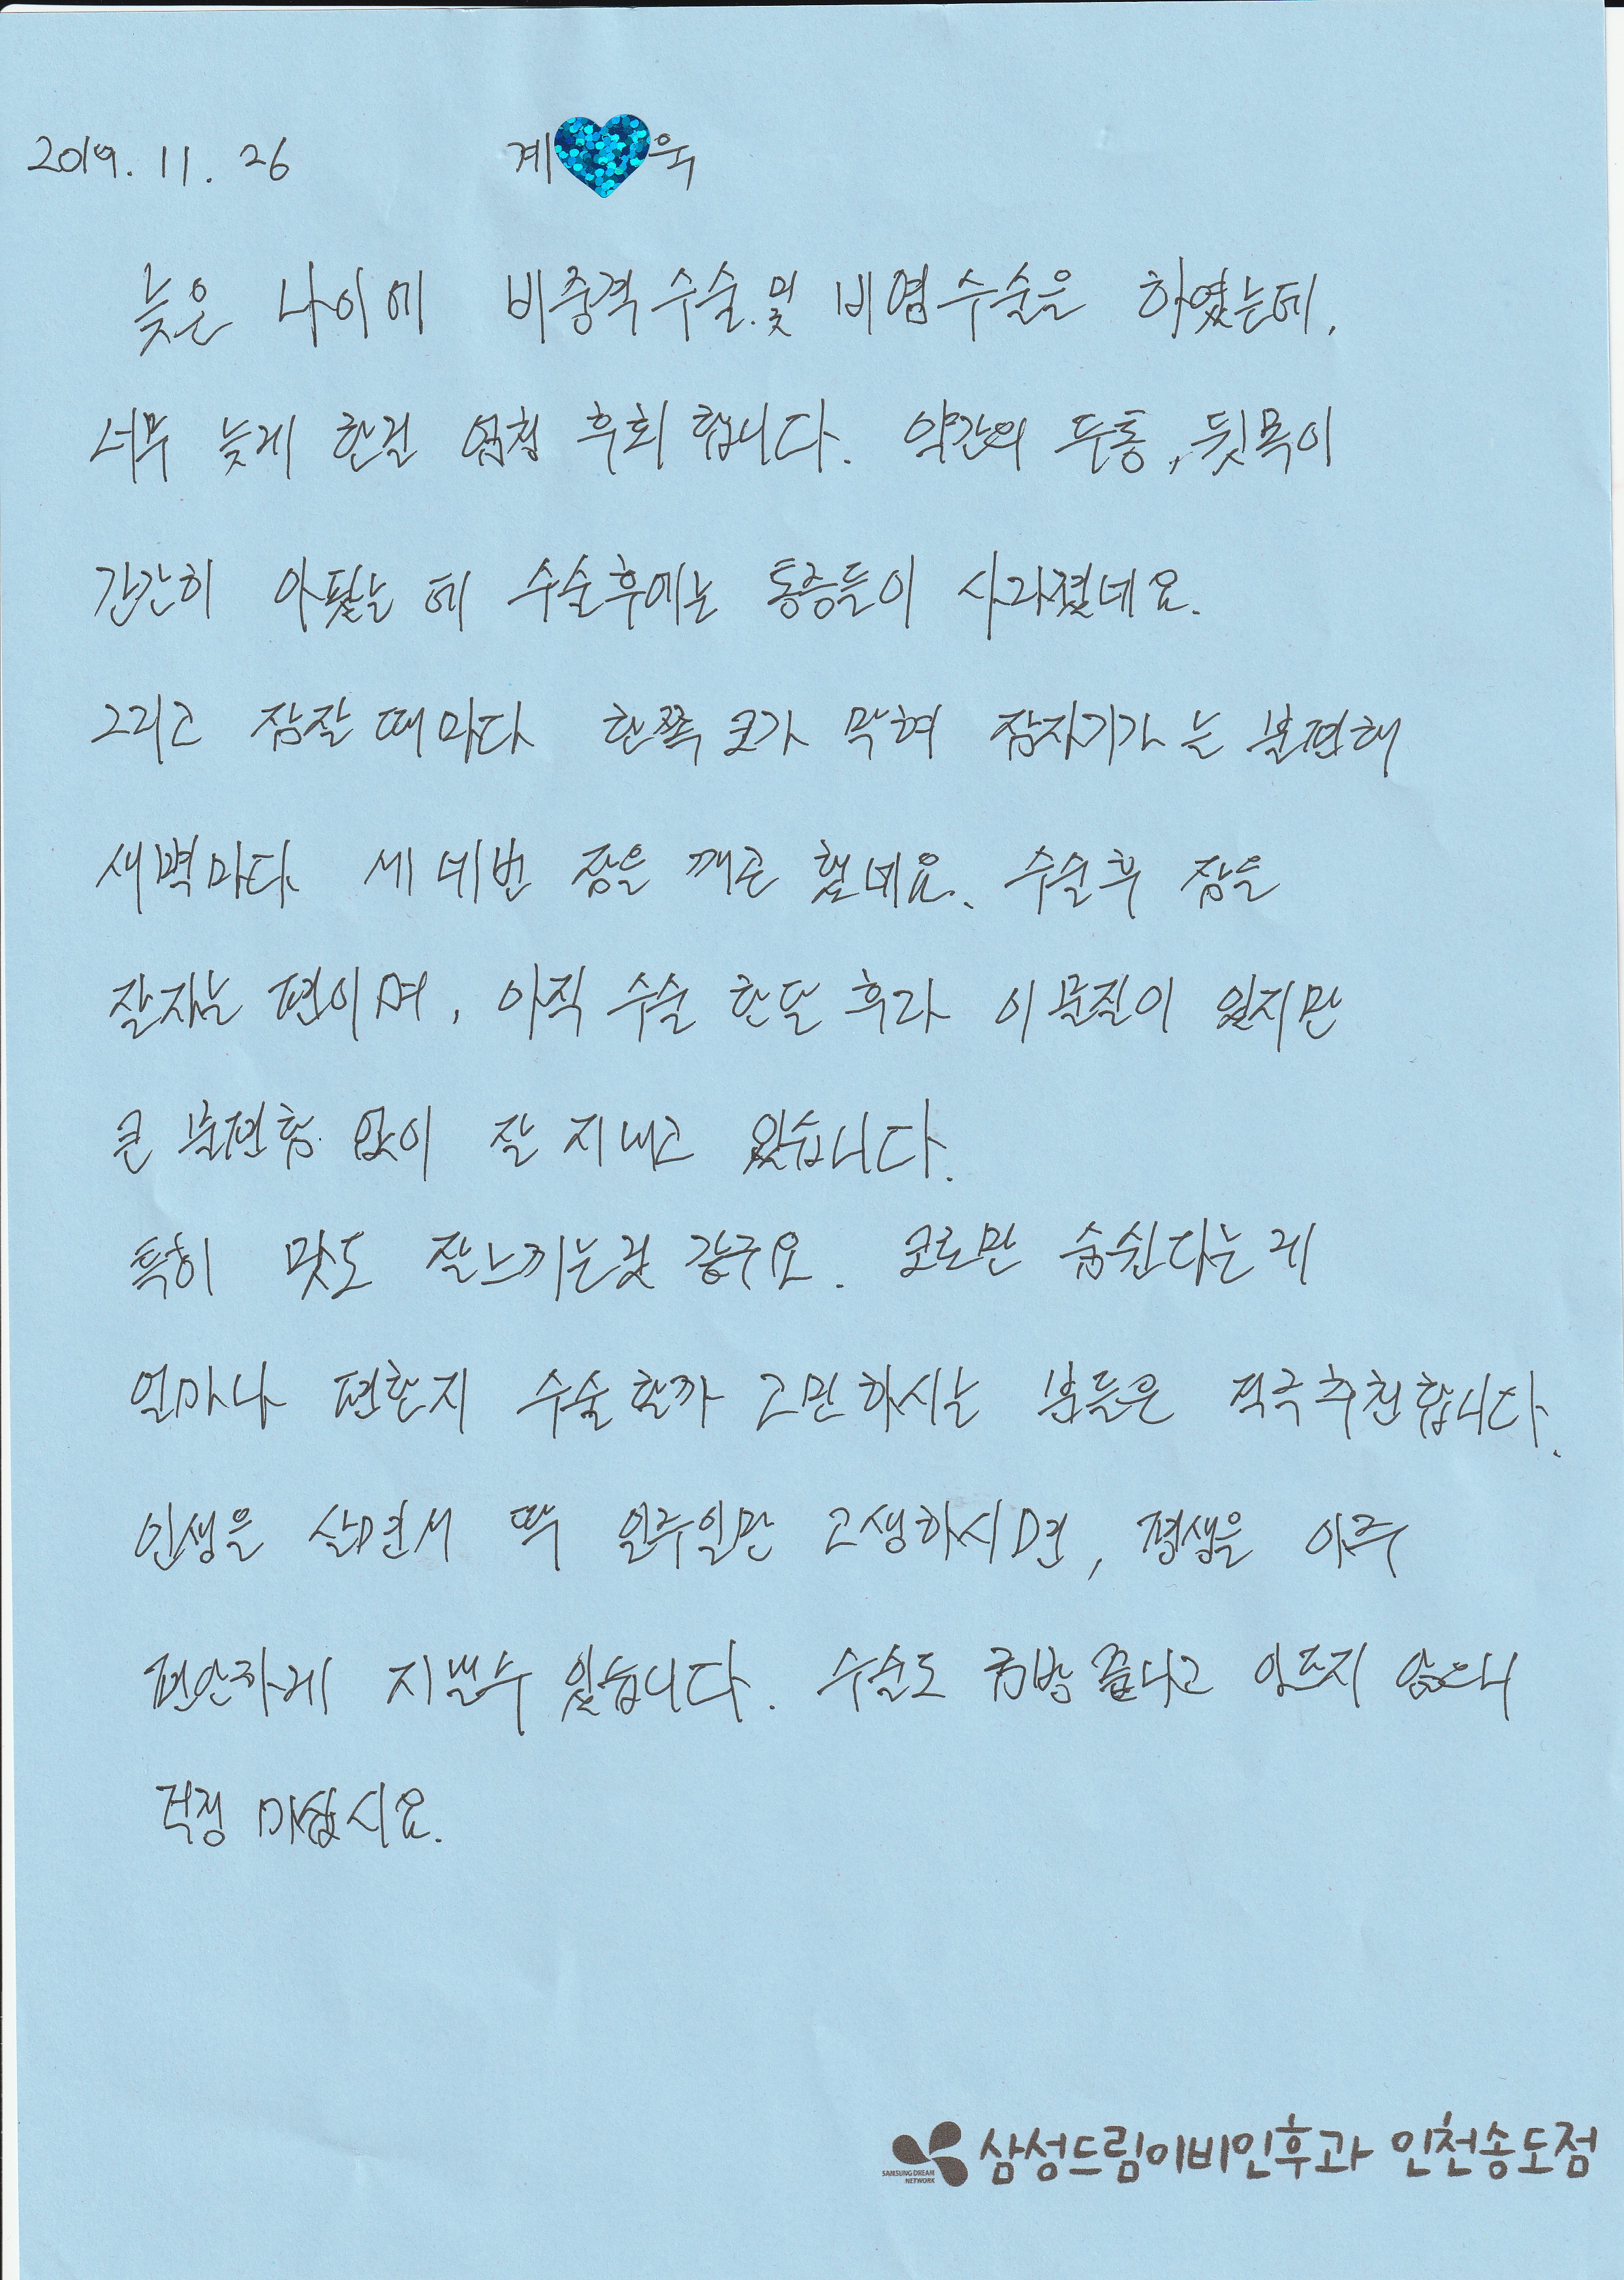 2019. 11. 26 계 욱
늦은 나이에 비중격수술.및 비염수술을 하였는데,
너무 늦게 한걸 엄청 후회 합니다. 약간의 두통, 뒷목이
간간히 아팠는 데 수술후에는 통증들이 사라졌네요.
그리고 잠잘 때 마다 한쪽 코가 막혀 잠자기가 는 불편해
새벽마다 세 네번 잠을 깨곤 했네요. 수술후 잠을
잘자는 편이며, 아직 수술 한달 후라 이물질이 있지만
큰 불편함 없이 잘 지내고 있습니다.
특히 맛도 잘느끼는것 같구요. 코로만 숨쉰다는게
얼마나 편한지 수술할까 고민하시는 분들은 적극추천합니다.
인생을 살면서 딱 일주일만 고생하시면, 평생을 아주
편안하게 지낼수 있습니다. 수술도 금방 끝나고 아프지 않으니
걱정 마십시요.
삼성드림이비인후과 인천송도점
SAMSUNG DREAM
NETWORK